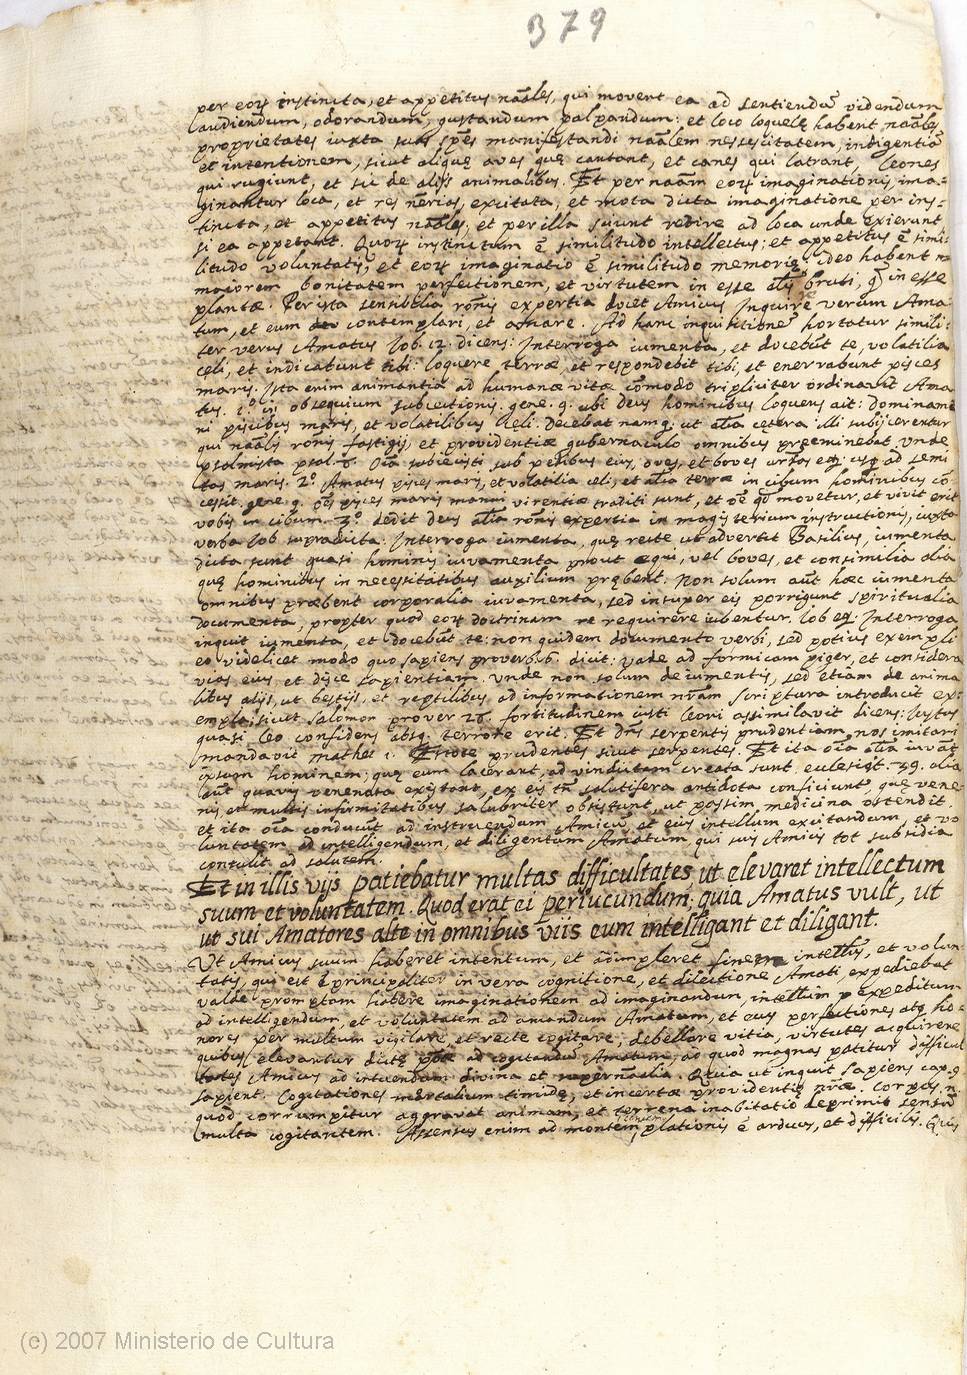 379
per eorum instincta, et appetitus nāāles, qui movent ea ad sentiendū videndum
audiendum, odorandum, gustandum palpandum: et loco loquelę habent nāāles
proprietates iuxta suas spēs manifestandi nāālem nessessitatem, indigentiā
et intentionem, sicut aliquę aves quę cantant, et canes qui latrant, leones
qui rugiunt, et sic de alijs animalibus. Et per nāām eorum imaginationis, ima=
ginantur loca, et res nērias, excitata, et mota dicta imaginatione per ins=
tincta, et appetitus nāāles, et per illa sciunt redire ad loca unde exierunt
si ea appetant. Quorum instinctum ē similitudo intellectus: et appetitus ē simi=
litudo voluntatis, et eorum imaginatio ē similitudo memorię, ideo habent
maiorem bonitatem perfectionem, et virtutem in esse bruti, in esse
plantæ. Per ista sensibilia rōnis expertia docet Amicus inquire verum Ama
tum, et eum contemplari, et amare. Ad hanc inquisitionē hortatur simili=
ter verus Amatus Job. 12. dicens: Interroga iumenta, et docebūt te, volatilia
celi, et indicabunt tibi: loquere terræ, et respondebit tibi, et enerrabunt pisces
maris. Ista enim animantia ad humanæ vitæ cōmodo tripliciter ordinavit Ama
tus. 1.º in obsequium subiectionis. gene. 9. ubi deus hominibus loquens ait: dominame
ni piscibus maris, et volatilibus celi. Decebat namq. ut ālia cętera illi subijcerentur
qui nāālis rōnis fastigijs, et providentiæ gubernaculo omnibus pręeminebat, unde
psalmista psal. 8. Oīa subiecisti sub pedibus eius, oves, et boves ad semi
tas maris. 2.º Amatus pisces maris, et volatilia celi, et ālia terræ in cibum hominibus cō
cessit. gene. 9. oēs pisces maris manui virentiæ traditi sunt, et oē qd movetur, et vivit erit
vobis in cibum. 3.º dedit deus ālia rōnis expertia in magisterium instructionis, iuxta
verba Job supradicta. Interroga iumenta, quę recte ut advertit Basilius, iumenta
dicta sunt quasi hominis iuvamenta prout equi, vel boves, et consimilia alia
quę hominibus in necessitatibus auxilium prębent. Non solum aūt hæc iumenta
omnibus præbent corporalia iuvamenta, sed insuper eis porrigunt spiritualia
documenta, propter quod eorum doctrinam ne requirere iubentur. Job Interroga
inquit iumenta, et docebūt te: non quidem documento verbi, sed potius exempli
eo videlicet modo quo sapiens proverb. 6. dicit: vade ad formicam piger, et considera
vias eius, et disce sapientiam. Unde non solum de iumentis, sed etiam de anima
libus alijs, ut bestijs, et reptilibus, ad informationem nrām scriptura introducit ex=
empla, sicut Salomon prover 28. fortitudinem iusti leoni assimilavit dicens: Iustus
quasi leo confidens absq. terrore erit. Et dns serpentis prudentiam nos imitari
mandavit mathei. Estote prudentes sicut serpentes. Et ita oīa ālia iuvāt
ipsum hominem; quę eum lacerant, ad vindictam creata sunt. ecclesiast. 39. alia
licūt quavis venenata existant, ex eis tn̄ salutifera antidota conficiunt, quę vene
nis, et multis infirmitatibus salubriter obsistunt, ut passim medicina ostendit.
et ita oīa conducūt ad instruendum Amicū, et eius intellum excitandum, et vo
luntatem ad intelligendum, et diligentum Amatum, qui suis Amicis tot subsidia
contulit ad salutem.
Et in illis vijs patiebatur multas difficultates, ut elevaret intellectum
suum et voluntatem. Quod erat ei periucundum: quia Amatus vult, ut
ut sui Amatores alte in omnibus viis eum intelligant et diligant.
Ut Amicus suum haberet intentum, et adimpleret finem intellūs, et volun
tatis, qui est principaliter in vera cognitione, et dilectione Amati, expediebat
valde promptam habere imaginationem ad imaginandum, intellūm expeditum
ad intelligendum, et voluntatem ad amandum Amatum, et eius perfectiones atq. ho
nores per multum vigilare, et recte cogitare, debellare vitia, virtutes acquirere
quibus elevantur dictę ad cogitandū Amatum, ad quod magnas patitur difficul
tates Amicus ad intuendum divina et supernāālia. Quia ut inquit Sapiens cap. 9.
sapient. Cogitationes mortalium timidę, et incertæ providentię nrāe. Corpus
quod corrumpitur aggravat animam, et terrena inabitatio deprimit sensū
multa cogitantem. Assensus enim ad montem ē arduus, et difficilis. Quis
(c) 2007 Ministerio de Cultura